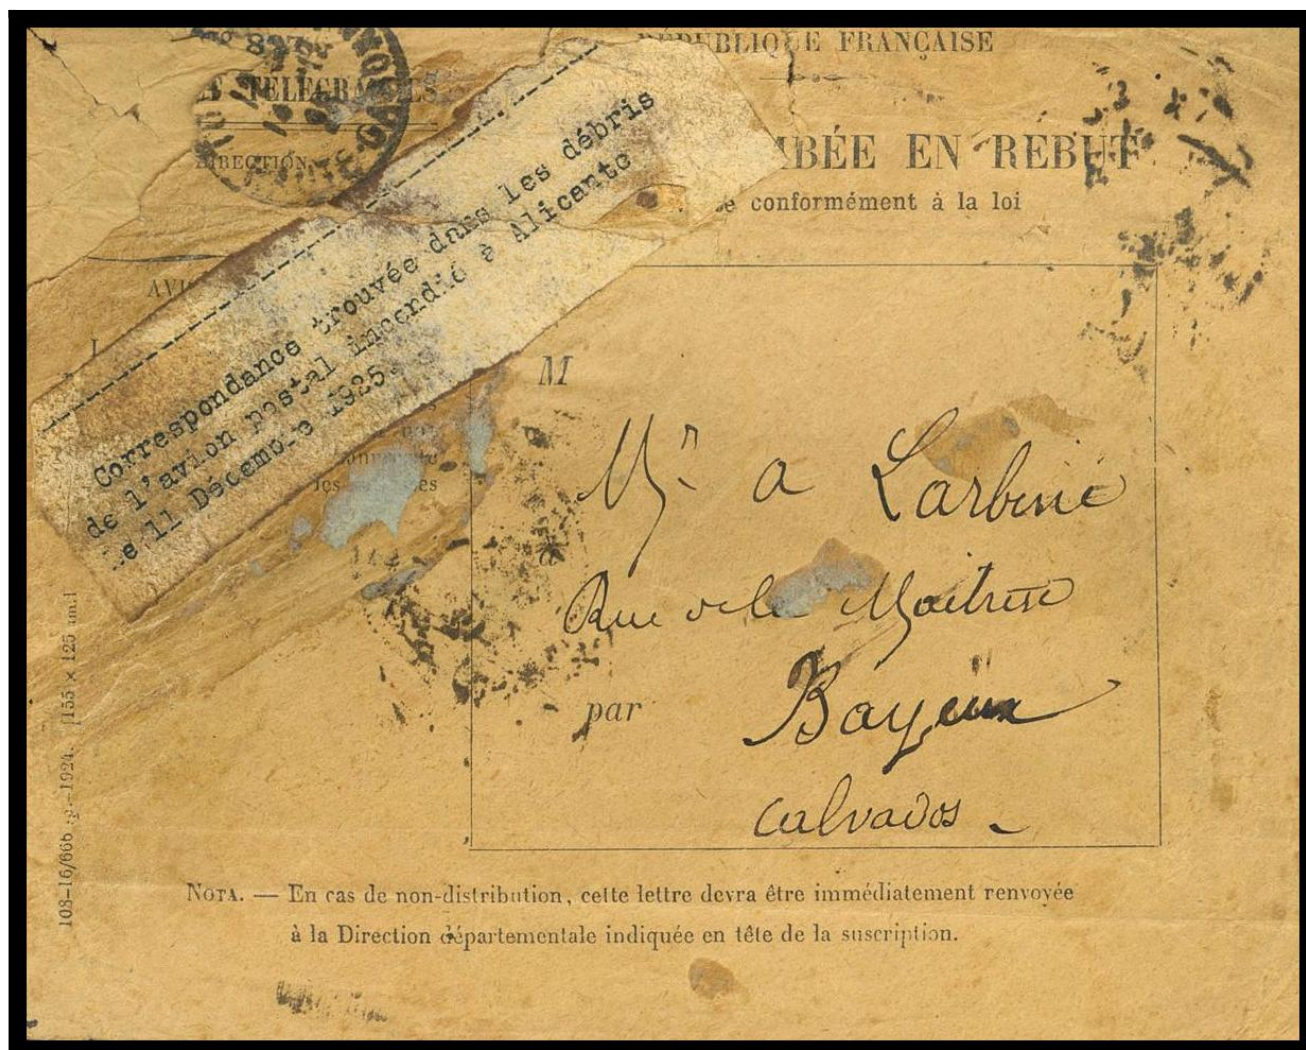 RÉPUBLIQUE FRANÇAISE
TÉLÉGRAPHES
DIRECTION
EN REBUT
conformément à la loi
Correspondance trouvée dans les débris
de l'avion postal incendié à Alicante
le 11 Décembre 1925.
M
Mr a Larbinié
à
Rue de la Maitrise
par
Bayeux
Calvados
NOTA. — En cas de non-distribution, cette lettre devra être immédiatement renvoyée
à la Direction départementale indiquée en tête de la suscription.